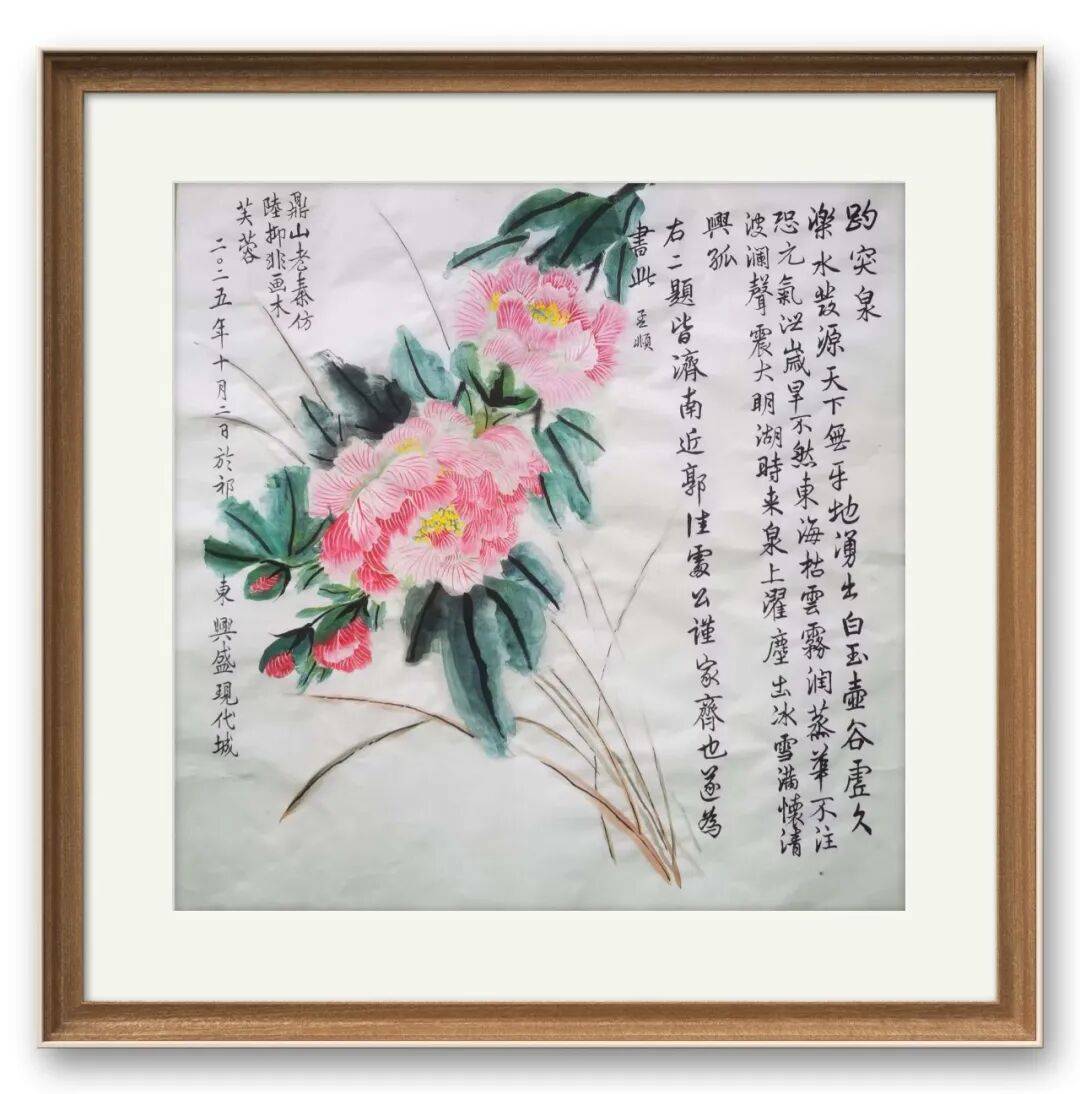 趵突泉
濼水發源天下無平地湧出白玉壺谷虛久
恐元氣洩歲旱不然東海枯雲霧润蒸華不注
波澜聲震大明湖時来泉上濯塵出冰雪满懷清
興孤
右二題皆濟南近郭佳處公谨家齊也遂為
書此
鼎山老秦仿
陸抑非画木
芙蓉
二〇二五年十月二日於祁東興盛現代城